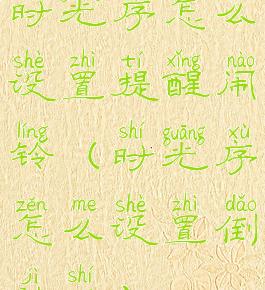 时光序怎么
shè zhì tí xǐng nào
设置提醒闹
líng shí guāng xù
铃（时光序
zěn me shè zhì dǎo
怎么设置倒
jì shí